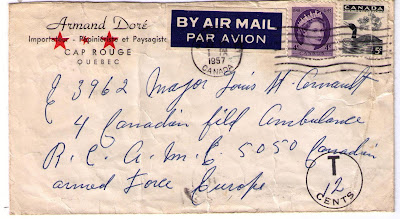 Armand Doré
Importateur - Pépiniériste et Paysagiste
CAP ROUGE
QUEBEC
BY AIR MAIL
PAR AVION
CANADA
5
1957
CANADA
J 3962 Major Louis M. Arnault
4 Canadian field Ambulance
R.C.A.M.C 5050 Canadian
armed Force Europe
T
12
CENTS